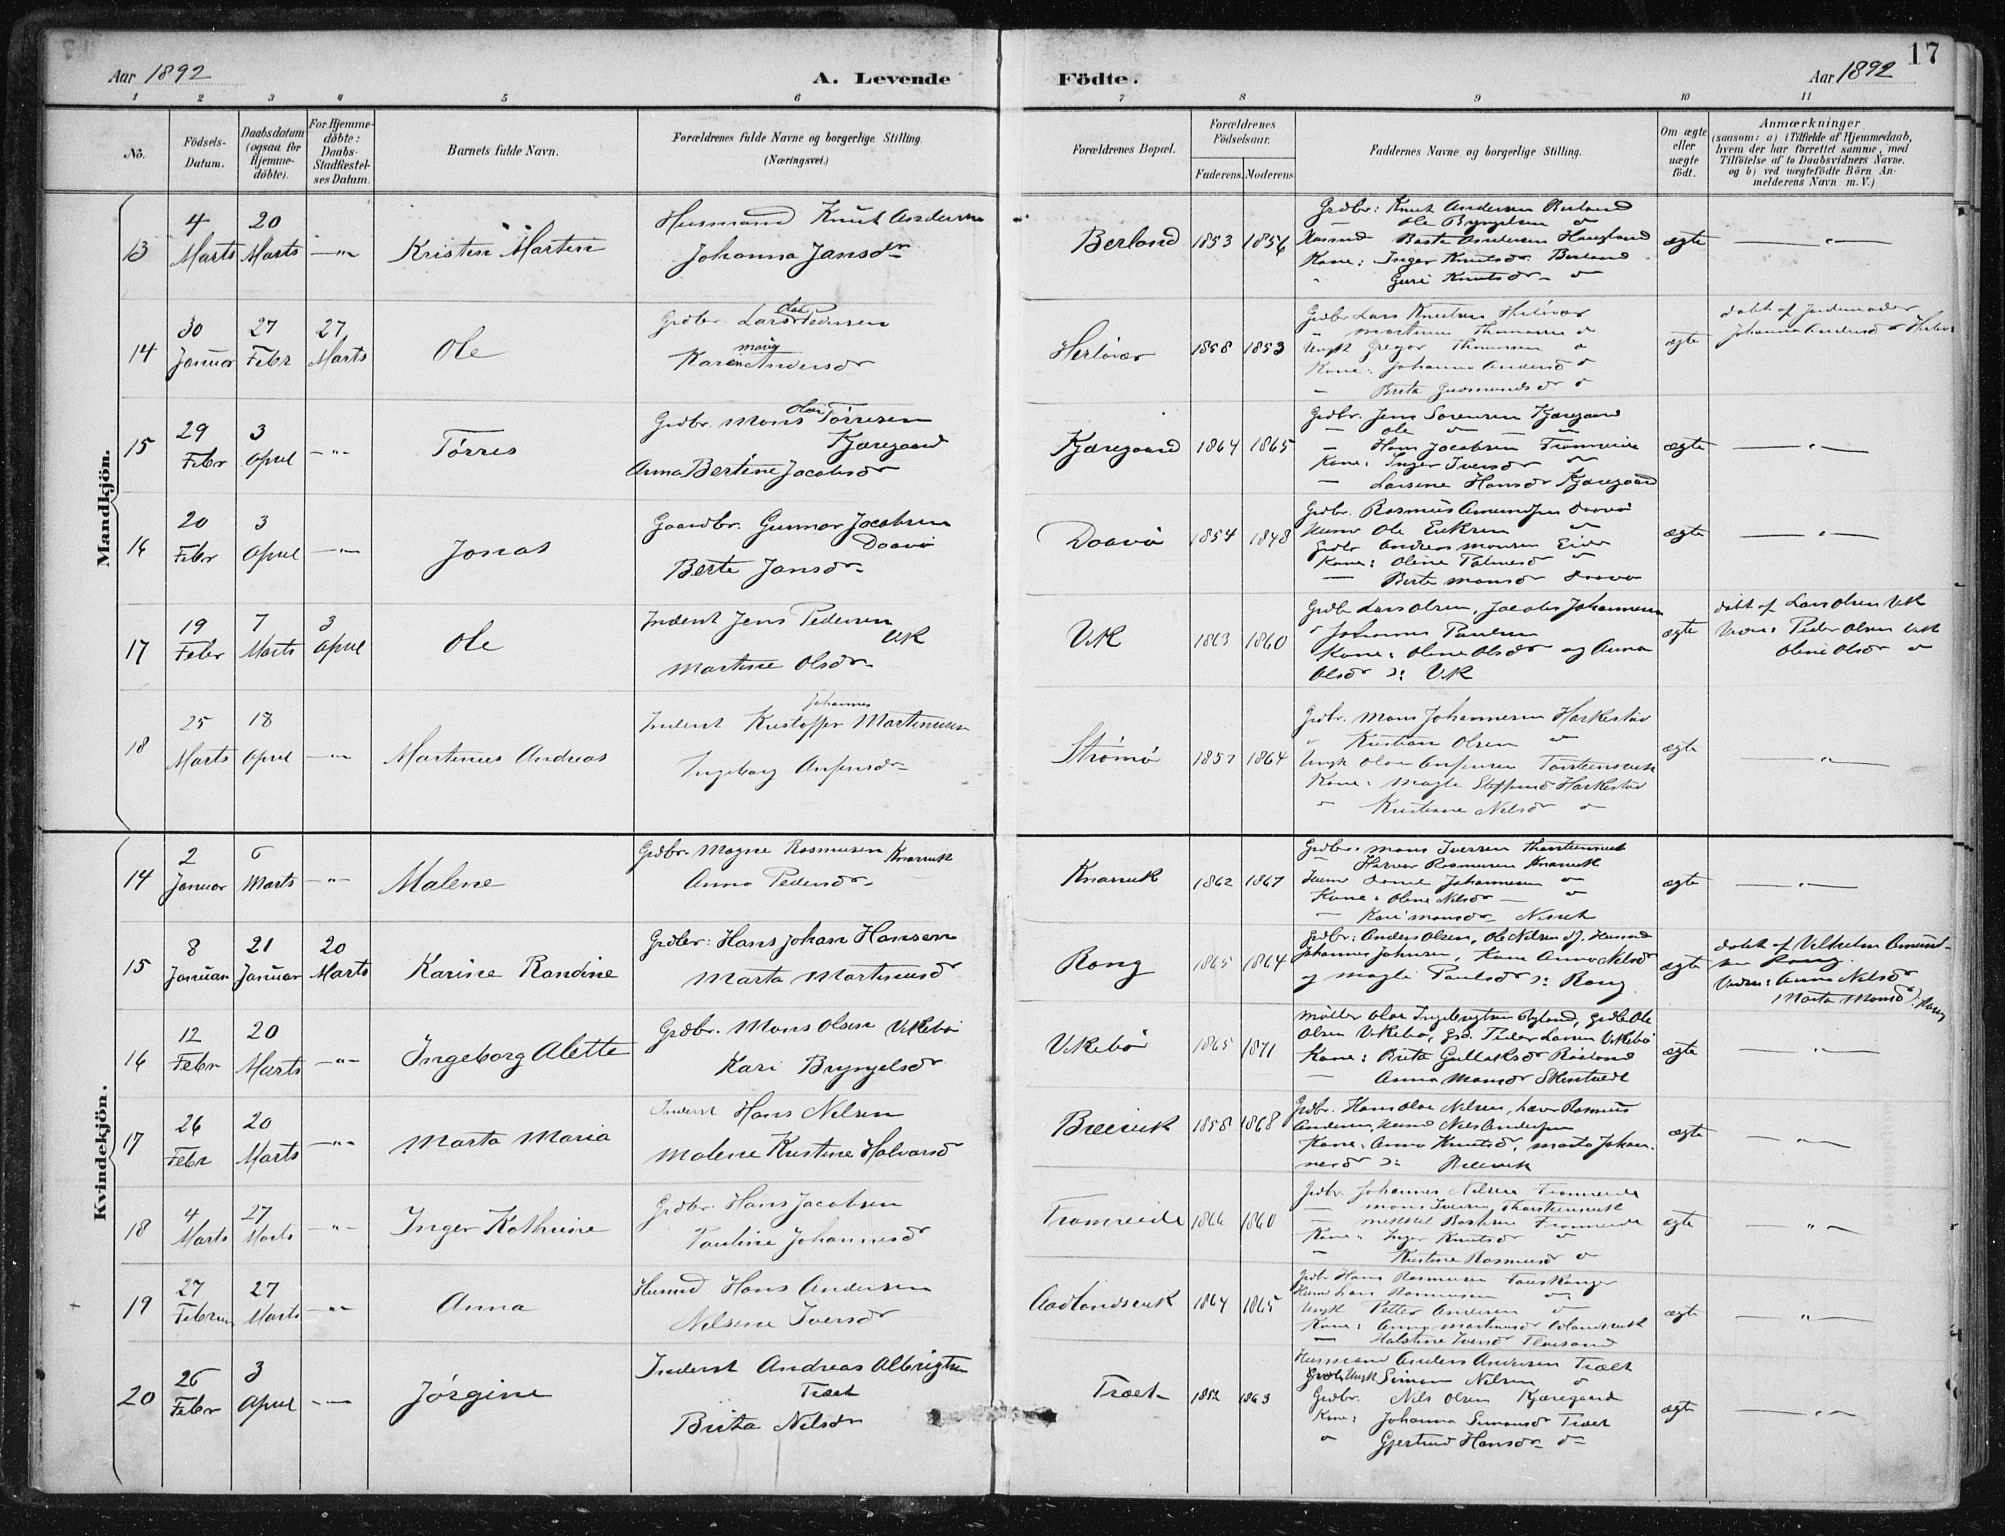 17
Aar 1892
A. Levende
Födte.
Aar 1892
1 2 3 4 5 6 7 8 9 10 11
No.
Födsels-
Datum.
Daabsdatum
(ogsaa for
Hjemme-
döbte).
For Hjemme-
döbte:
Daabs-
Stadfæstel-
ses Datum.
Barnets fulde Navn.
Forældrenes fulde Navne og borgerlige Stilling.
(Næringsvei.)
Forældrenes Bopæl.
Forældrenes
Födselsaar.
Faderens. Moderens.
Faddernes Navne og borgerlige Stilling.
Om ægte
eller
uægte
födt.
Anmærkninger
(saasom: a) i Tilfælde af Hjemmedaab,
hvem der har forrettet samme, med
Tilföielse af to Daabsvidners Navne.
og b) ved uægtefödte Börn An-
melderens Navn m. V.)
Mandkjön.
13
4 Marts
20 Marts
—"—
Kristen Martin
Husmand Knut Andersen
Johanna Jansdr
Berland
1853 1856
Grdbr: Knut Andersen Berland
Ole Byngelsen do
Baste Andersen Haugland
Kone: Inger Knutsdr Berland
" Guri Knutsdr do
ægte
—"—
14
30 Januar
27 Febr
27 Marts
Ole
Grdbr. Lars Olai Pedersen
Karen Marie Andersdr
Herløvær
1858 1853
Grdbr Lars Knutsen
Gregor Thomassen do
Kone: Johanna Andersdr do
— Brita Gudmundsdr do
ægte
døbt af Jordemoder
Johanna Andersdr
15
29 Febr
3 April
—"—
Tørres
Grdbr. Mons Olai Tørresen
Kjæregaard
Anna Bertine Jacobsdr
Kjæregaard
1864 1865
Grdbr. Jens Sørensen Kjæregaard
— Ole do — do
— Hans Jacobsen Framreide
Kone: Inger Iversdr do
— Larsine Hansdr Kjæregaard
ægte
—"—
16
20 Febr
3 April
—"—
Jonas
Gaardbr. Gunnar Jacobsen
Daavø
Berte Jansdr
Daavø
1854 1848
Grdbr. Rasmus Amundsen Daavø
Husmd Ole Eriksen do
Grdbr Andreas Monsen
Kone: Oline do
— Berte Monsdr Daavø
ægte
—"—
17
19 Febr
7 Marts
3 April
Ole
Inderst Jens Pedersen
Vik
Martine Olsdr
Vik
1863 1860
Grdbr Lars Olsen, Jacob Johannesen
" Johannes Paulsen
Kone: Oline Olsdr og Anna
Olsdr : Vik
ægte
døbt af Lars Olsen Vik
Vidner: Peder Olsen Vik
Oline Olsdr do
18
25 Marts
18 April
—"—
Martinus Andreas
Inderst Kristoffer Johannes Martinusen
Ingeborg Anfinsdr
Strømø
1857 1864
Grdbr. Mons Johannesen Harkestad
" Kristian Olsen do
Ungk Olai Anfinsen Torsteinsvik
Kone: Magle Steffensdr Harkestad
" Kristiane Nilsdr do
ægte
—"—
Kvindekjön.
14
2 Januar
6 Marts
—"—
Malene
Grdbr. Mogne Rasmusen Knarrvik
Anna Pedersdr
Knarrvik
1862 1867
Grdbr. Mons Iversen Thorsteinsvik
— Halvor Rasmusen Knarrvik
Johannesen do
Kone: Oline Nilsdr — do
— Kari Monsdr
ægte
—"—
15
8 Januar
21 Januar
20 Marts
Karine Randine
Grdbr: Hans Johan Hansen
Marta Martinusdr
Rong
1865 1864
Grdbr: Anders Olsen, Ole Nilsen
Johannes Johnsen, Kone Anna Nilsdr
og Magle Paulsdr : Rong
ægte
døbt af Vilhelm Amund-
sen Rong.
Vidner: Anna Nilsdr
Marta Monsdr : Rong
16
12 Febr
20 Marts
—"—
Ingeborg Alette
Grdbr. Mons Olsen Vikebø
Kari Bryngelsdr
Vikebø
1865 1871
Møller Olai Ingebrigtsen, Grdbr Ole
Olsen Vikebø, Grd. Peder Larsen Vikebø
Kone: Brita Gullaksdr
— Anna Monsdr
ægte
—"—
17
26 Febr
20 Marts
—"—
Marta Maria
Inderst Hans Nilsen
Malene Kristine Halvorsdr
Breivik
1858 1868
Grdbr. Hans Olai Nilsen, Rasmus
Andersen, Husmd Nils Andersen
Kone: Anna Knutsdr, Marta Johan-
nesdr : Breivik
ægte
—"—
18
4 Marts
27 Marts
—"—
Inger Kathrine
Grdbr. Hans Jacobsen
Pauline Johannesdr
Framreide
1866 1860
Grdbr. Johannes Nilsen Framreide
— Mons Iversen Thorsteinsvik
— Mikkel Framreide
Kone: Inger Knutsdr do
— Kristine Rasmusdr do
ægte
—"—
19
27 Februar
27 Marts
—"—
Anna
Husmd Hans Andersen
Nilsine Iversdr
Aadlandsvik
1864 1865
Grdbr. Hans Rasmusen
Husmd Lars Rasmusen do
Ungk Petter Andersen do
Kone: Anna Martinusdr
— Halstine Iversdr
ægte
—"—
20
26 Febr
3 April
—"—
Jørgine
Inderst Andreas Albrigtsen
Træet
Brita Nilsdr
Træet
1852 1863
Husmand Anders Andersen Træet
Ungk Simon Nilsen do
Grdbr. Nils Olsen Kjæregaard
Kone: Johanna Simonsdr Træet
" Gjertrud Hansdr do
ægte
—"—